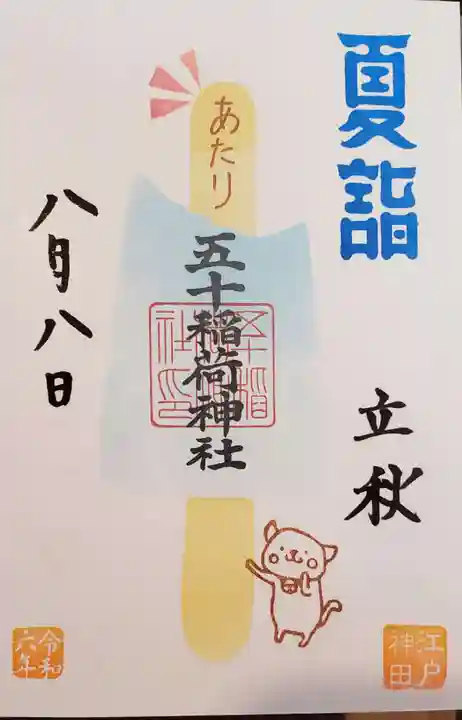 夏詣
立秋
あたり
五十稲荷神社
八月八日
江戸
神田
令和
六年